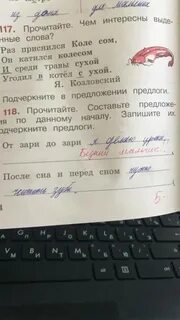 из дома для мамы
117. Прочитайте. Чем интересны выде-
ленные слова?
Раз приснился Коле сом,
Он катился колесом
И среди травы сухой
Угодил в котёл с ухой.
Я. Козловский
Подчеркните в предложении предлоги.
118. Прочитайте. Составьте предложе-
ния по данному началу. Запишите их
Подчеркните предлоги.
От зари до зари я делаю уроки.
Бедный мальчик...
После сна и перед сном нужно
чистить зубы.
5-